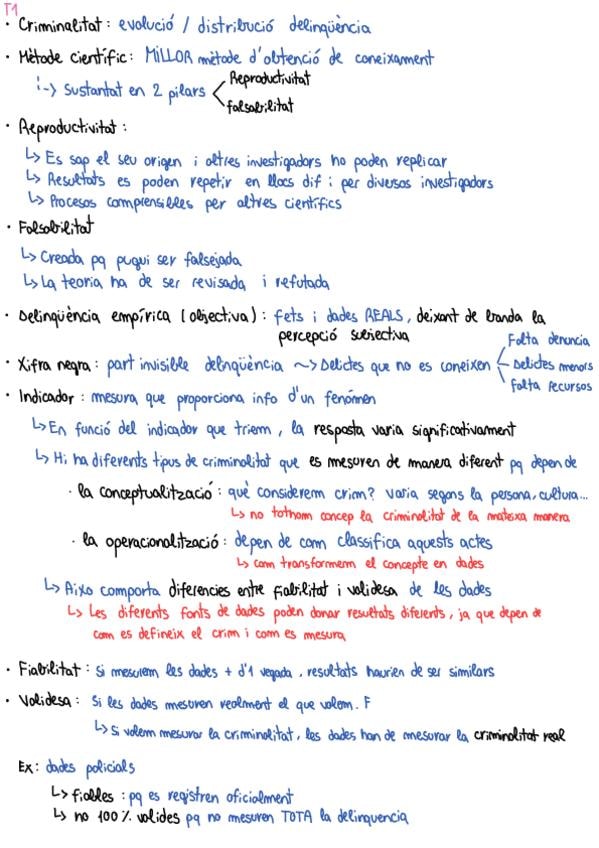 T1
· Criminalitat: evolució / distribució delinqüència
· Mètode científic: MILLOR mètode d'obtenció de coneixament
↳ Sustantat en 2 pilars < Reproductivitat
falsabilitat
· Reproductivitat:
↳ Es sap el seu origen i altres investigadors ho poden replicar
↳ Resultats es poden repetir en llocs dif i per diversos investigadors
↳ Processos comprensibles per altres científics
· Falsabilitat
↳ Creada pq pugui ser falsejada
↳ La teoria ha de ser revisada i refutada
· Delinqüència empírica (objectiva): fets i dades REALS, deixant de banda la
percepció subjectiva
Falta denuncia
· Xifra negra: part invisible delinqüència ~> Delictes que no es coneixen - Delictes menors
falta recursos
· Indicador: mesura que proporciona info d'un fenomen
↳ En funció del indicador que triem, la resposta varia significativament
↳ Hi ha diferents tipus de criminalitat que es mesuren de manera diferent pq depen de
· la conceptualització: què considerem crim? varia segons la persona, cultura...
↳ no tothom concep la criminalitat de la mateixa manera
· la operacionalització: depen de com classifica aquests actes
↳ com transformem el concepte en dades
↳ Aixo comporta diferencies entre fiabilitat i validesa de les dades
↳ Les diferents fonts de dades poden donar resultats diferents, ja que depen de
com es defineix el crim i com es mesura
· Fiabilitat: Si mesurem les dades + d'1 vegada, resultats haurien de ser similars
· Validesa: Si les dades mesuren realment el que volem. F
↳ Si volem mesurar la criminalitat, les dades han de mesurar la criminalitat real
Ex: dades policials
↳ fiables: pq es registren oficialment
↳ no 100% valides pq no mesuren TOTA la delinquencia